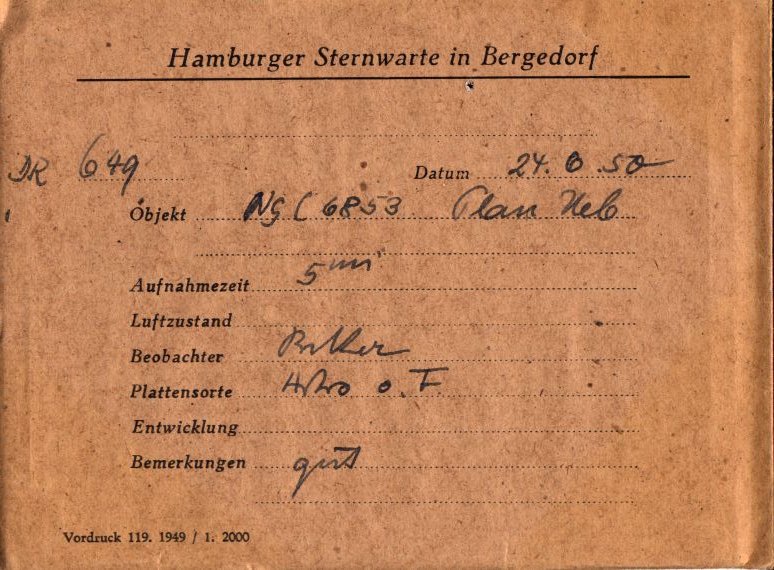 Hamburger Sternwarte in Bergedorf
DR 649
Datum 24. 8 .50
Objekt NGC 6853 Plan Neb
Aufnahmezeit 5 min
Luftzustand
Beobachter
Plattensorte Astro o. F.
Entwicklung
Bemerkungen gut
Vordruck 119. 1949 / 1. 2000